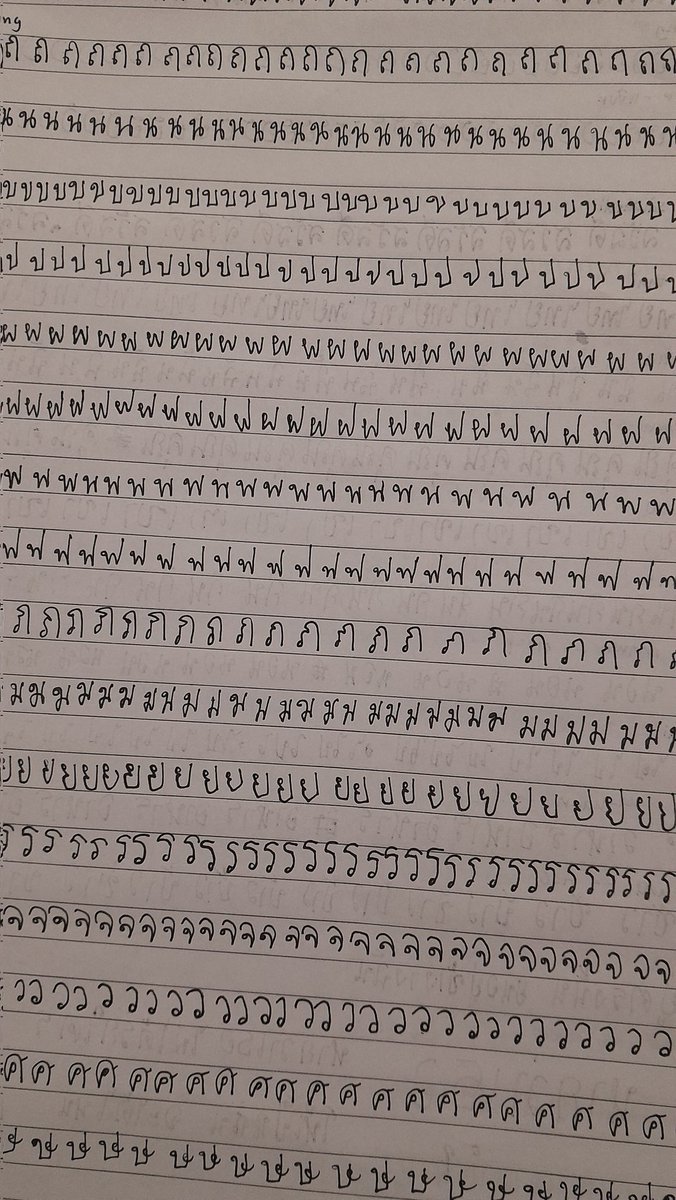 ng
ถ ถ ถ ถ ถ ถ ถ ถ ถ ถ ถ ถ ถ ถ ถ ถ ถ ถ ถ ถ ถ ถ ถ ถ ถ ถ
น น น น น น น น น น น น น น น น น น น น น น น น น น น น น น
บ บ บ บ บ บ บ บ บ บ บ บ บ บ บ บ บ บ บ บ บ บ บ บ บ บ บ บ บ บ บ บ บ บ
ป ป ป ป ป ป ป ป ป ป ป ป ป ป ป ป ป ป ป ป ป ป ป ป ป ป ป ป ป ป
ผ ผ ผ ผ ผ ผ ผ ผ ผ ผ ผ ผ ผ ผ ผ ผ ผ ผ ผ ผ ผ ผ ผ ผ ผ ผ ผ
ฝ ฝ ฝ ฝ ฝ ฝ ฝ ฝ ฝ ฝ ฝ ฝ ฝ ฝ ฝ ฝ ฝ ฝ ฝ ฝ ฝ ฝ ฝ ฝ ฝ ฝ
พ พ พ พ พ พ พ พ พ พ พ พ พ พ พ พ พ พ พ พ พ พ พ พ
ฟ ฟ ฟ ฟ ฟ ฟ ฟ ฟ ฟ ฟ ฟ ฟ ฟ ฟ ฟ ฟ ฟ ฟ ฟ ฟ ฟ ฟ ฟ ฟ ฟ
ภ ภ ภ ภ ภ ภ ภ ภ ภ ภ ภ ภ ภ ภ ภ ภ ภ ภ ภ ภ ภ
ม ม ม ม ม ม ม ม ม ม ม ม ม ม ม ม ม ม ม ม ม ม ม ม ม ม ม ม ม ม
ย ย ย ย ย ย ย ย ย ย ย ย ย ย ย ย ย ย ย ย ย ย ย ย ย ย
ร ร ร ร ร ร ร ร ร ร ร ร ร ร ร ร ร ร ร ร ร ร ร ร ร ร ร ร ร ร ร ร ร
จ จ จ จ จ จ จ จ จ จ จ จ จ จ จ จ จ จ จ จ จ จ จ จ จ จ จ จ จ จ
ว ว ว ว ว ว ว ว ว ว ว ว ว ว ว ว ว ว ว ว ว ว ว ว ว ว ว ว ว
ศ ศ ศ ศ ศ ศ ศ ศ ศ ศ ศ ศ ศ ศ ศ ศ ศ ศ ศ ศ ศ
ษ ษ ษ ษ ษ ษ ษ ษ ษ ษ ษ ษ ษ ษ ษ ษ ษ ษ ษ ษ